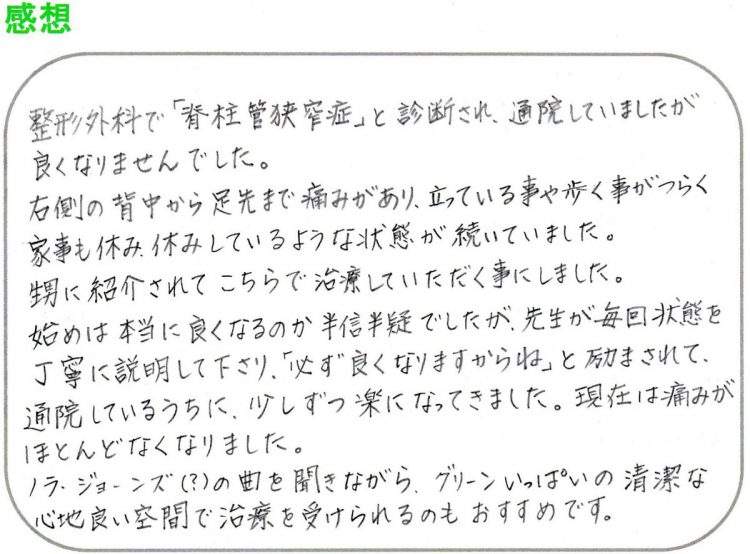 感想
整形外科で「脊柱管狭窄症」と診断され、通院していましたが
良くなりませんでした。
右側の背中から足先まで痛みがあり、立っている事や歩く事がつらく
家事も休み休みしているような状態が続いていました。
甥に紹介されてこちらで治療していただく事にしました。
始めは本当に良くなるのか半信半疑でしたが、先生が毎回状態を
丁寧に説明して下さり、「必ず良くなりますからね」と励まされて、
通院しているうちに、少しずつ楽になってきました。現在は痛みが
ほとんどなくなりました。
ノラ・ジョーンズ(?)の曲を聞きながら、グリーンいっぱいの清潔な
心地良い空間で治療を受けられるのもおすすめです。